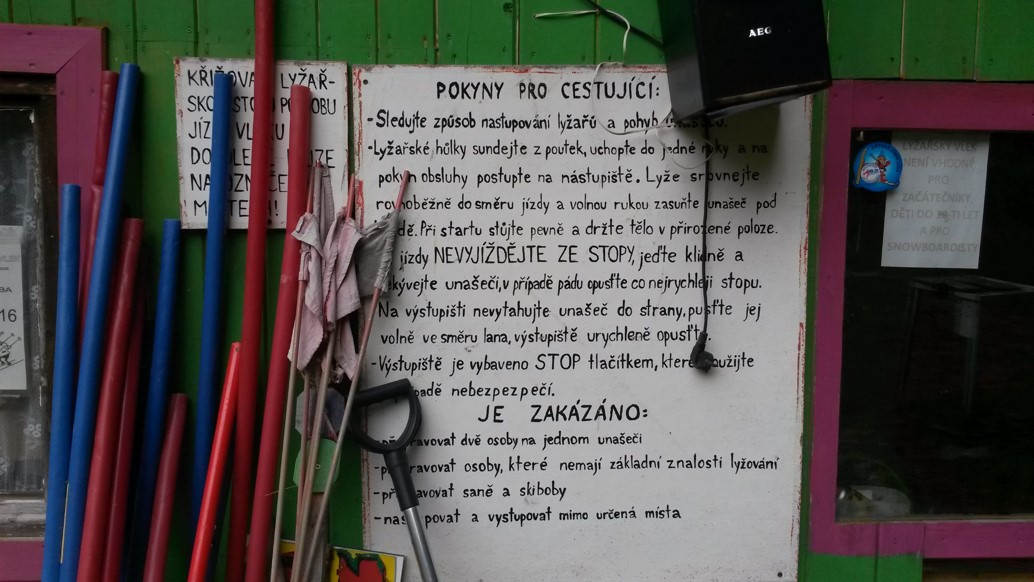 LYŽAŘ-
JÍZ
! !
POKYNY PRO CESTUJÍCÍ:
-Sledujte způsob nastupování lyžařů a pohyb
-Lyžařské hůlky sundejte z poutek, uchopte do jedné ruky a na
pokyn obsluhy postupte na nástupiště. Lyže srovnejte
rovnoběžně do směru jízdy a volnou rukou zasuňte unašeč pod
Při startu stůjte pevně a držte tělo v přirozené poloze.
jízdy NEVYJÍŽDĚJTE ZE STOPY, jeďte klidně a
unašeči, v případě pádu opusťte co nejrychleji stopu.
Na výstupišti nevytahujte unašeč do strany, pusťte jej
volně ve směru lana, výstupiště urychleně opusťte.
-Výstupiště je vybaveno STOP tlačítkem, které použijte
nebezpezpečí.
JE ZAKÁZÁNO:
-přepravovat dvě osoby na jednom unašeči
-přepravovat osoby, které nemají základní znalosti lyžování
-přepravovat saně a skiboby
-nastupovat a vystupovat mimo určená místa
AEG
LYŽAŘSKÝ VLEK
NENÍ VHODNÝ
PRO
ZAČÁTEČNÍKY,
DĚTI DO TI LET
A PRO
SNOWBOARDISTY
BA
16